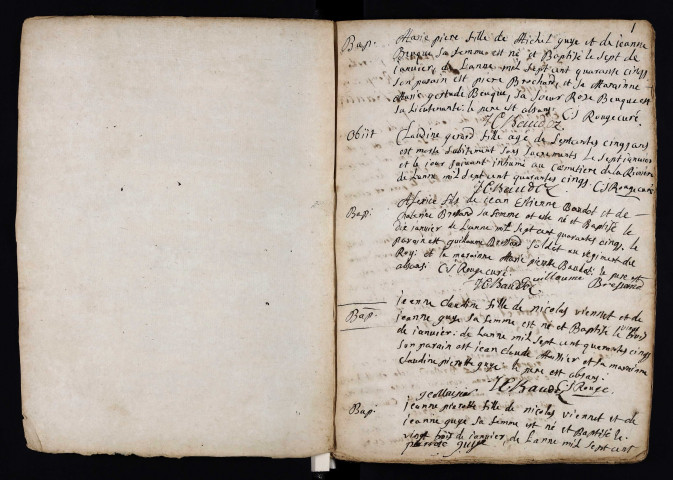 1
Bap. Marie piere fille de Michel guye et de jeanne
Beuque sa femme est né et Baptisé le Sept de
janvier de Lanne mil Sept cent quarante cinqs
son parain est piere Brochard et sa Marainne
Marie gertude Beuque, sa soeur Rose Beuque est
sa Lieutenante: le pere est absans. CS Rouge curé.
JC Baudot
Obiit Claudine gerard fille age de Septantes cinqs ans
est morte subitement sans sacrements le Sept janvier
et le jour suivant inhumé au cemetiere de la Riviere
de Lanne mil sept cent quarantes cinqs. CS Rouge curé
JC Baudot
Bap. fils de jean Estienne Baudot et de
Bressand sa femme et est né et Baptisé le
dix janvier de Lanne mil Sept cent quarantes cinqs. le
parain est guillaume Bressand soldat au regiment du
Roy: et la marainne Marie pierette Baudot: le pere est
absans. CS Rouge curé. guillaume Bressand
JC Baudot
Bap. jeanne claudine fille de nicolas viennet et de
jeanne guye sa femme est né et Baptisé le
de janvier: de Lanne mil Sept cent quarantes cinqs
son parain est jean claude et sa marainne
Claudine pierotte guye. le pere est absans.
JC Baudot CS Rouge.
Bap. jeanne pierotte fille de nicolas viennet et de
jeanne guye sa femme est né et Baptisé le
vingt trois de janvier de Lanne mil Sept cent
pierrote guye